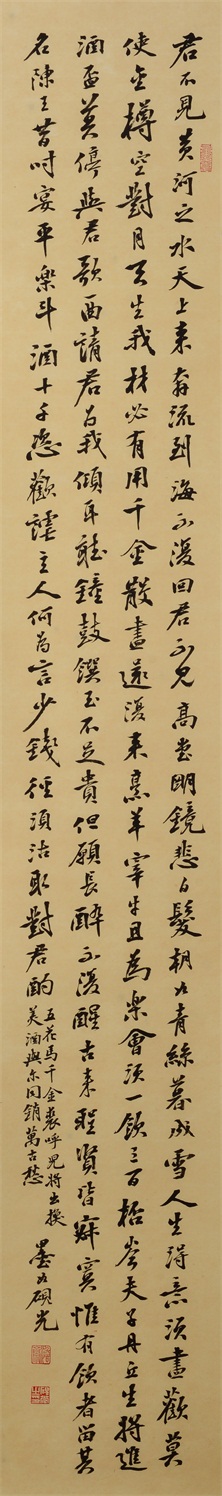 君不见黄河之水天上来奔流到海不复回君不见高堂明镜悲白髮朝如青絲暮成雪人生得意须盡歡莫
使金樽空對月天生我材必有用千金散盡還復来烹羊宰牛且為樂會须一飲三百杯岑夫子丹丘生將進
酒盃莫停與君歌一曲請君为我傾耳聽鐘鼓饌玉不足贵但願長醉不復醒古来聖賢皆寂寞惟有飲者留其
名陳王昔时宴平樂斗酒十千恣歡謔主人何為言少錢徑須沽取對君酌
五花马千金裘呼兒將出换
美酒與尔同銷萬古愁